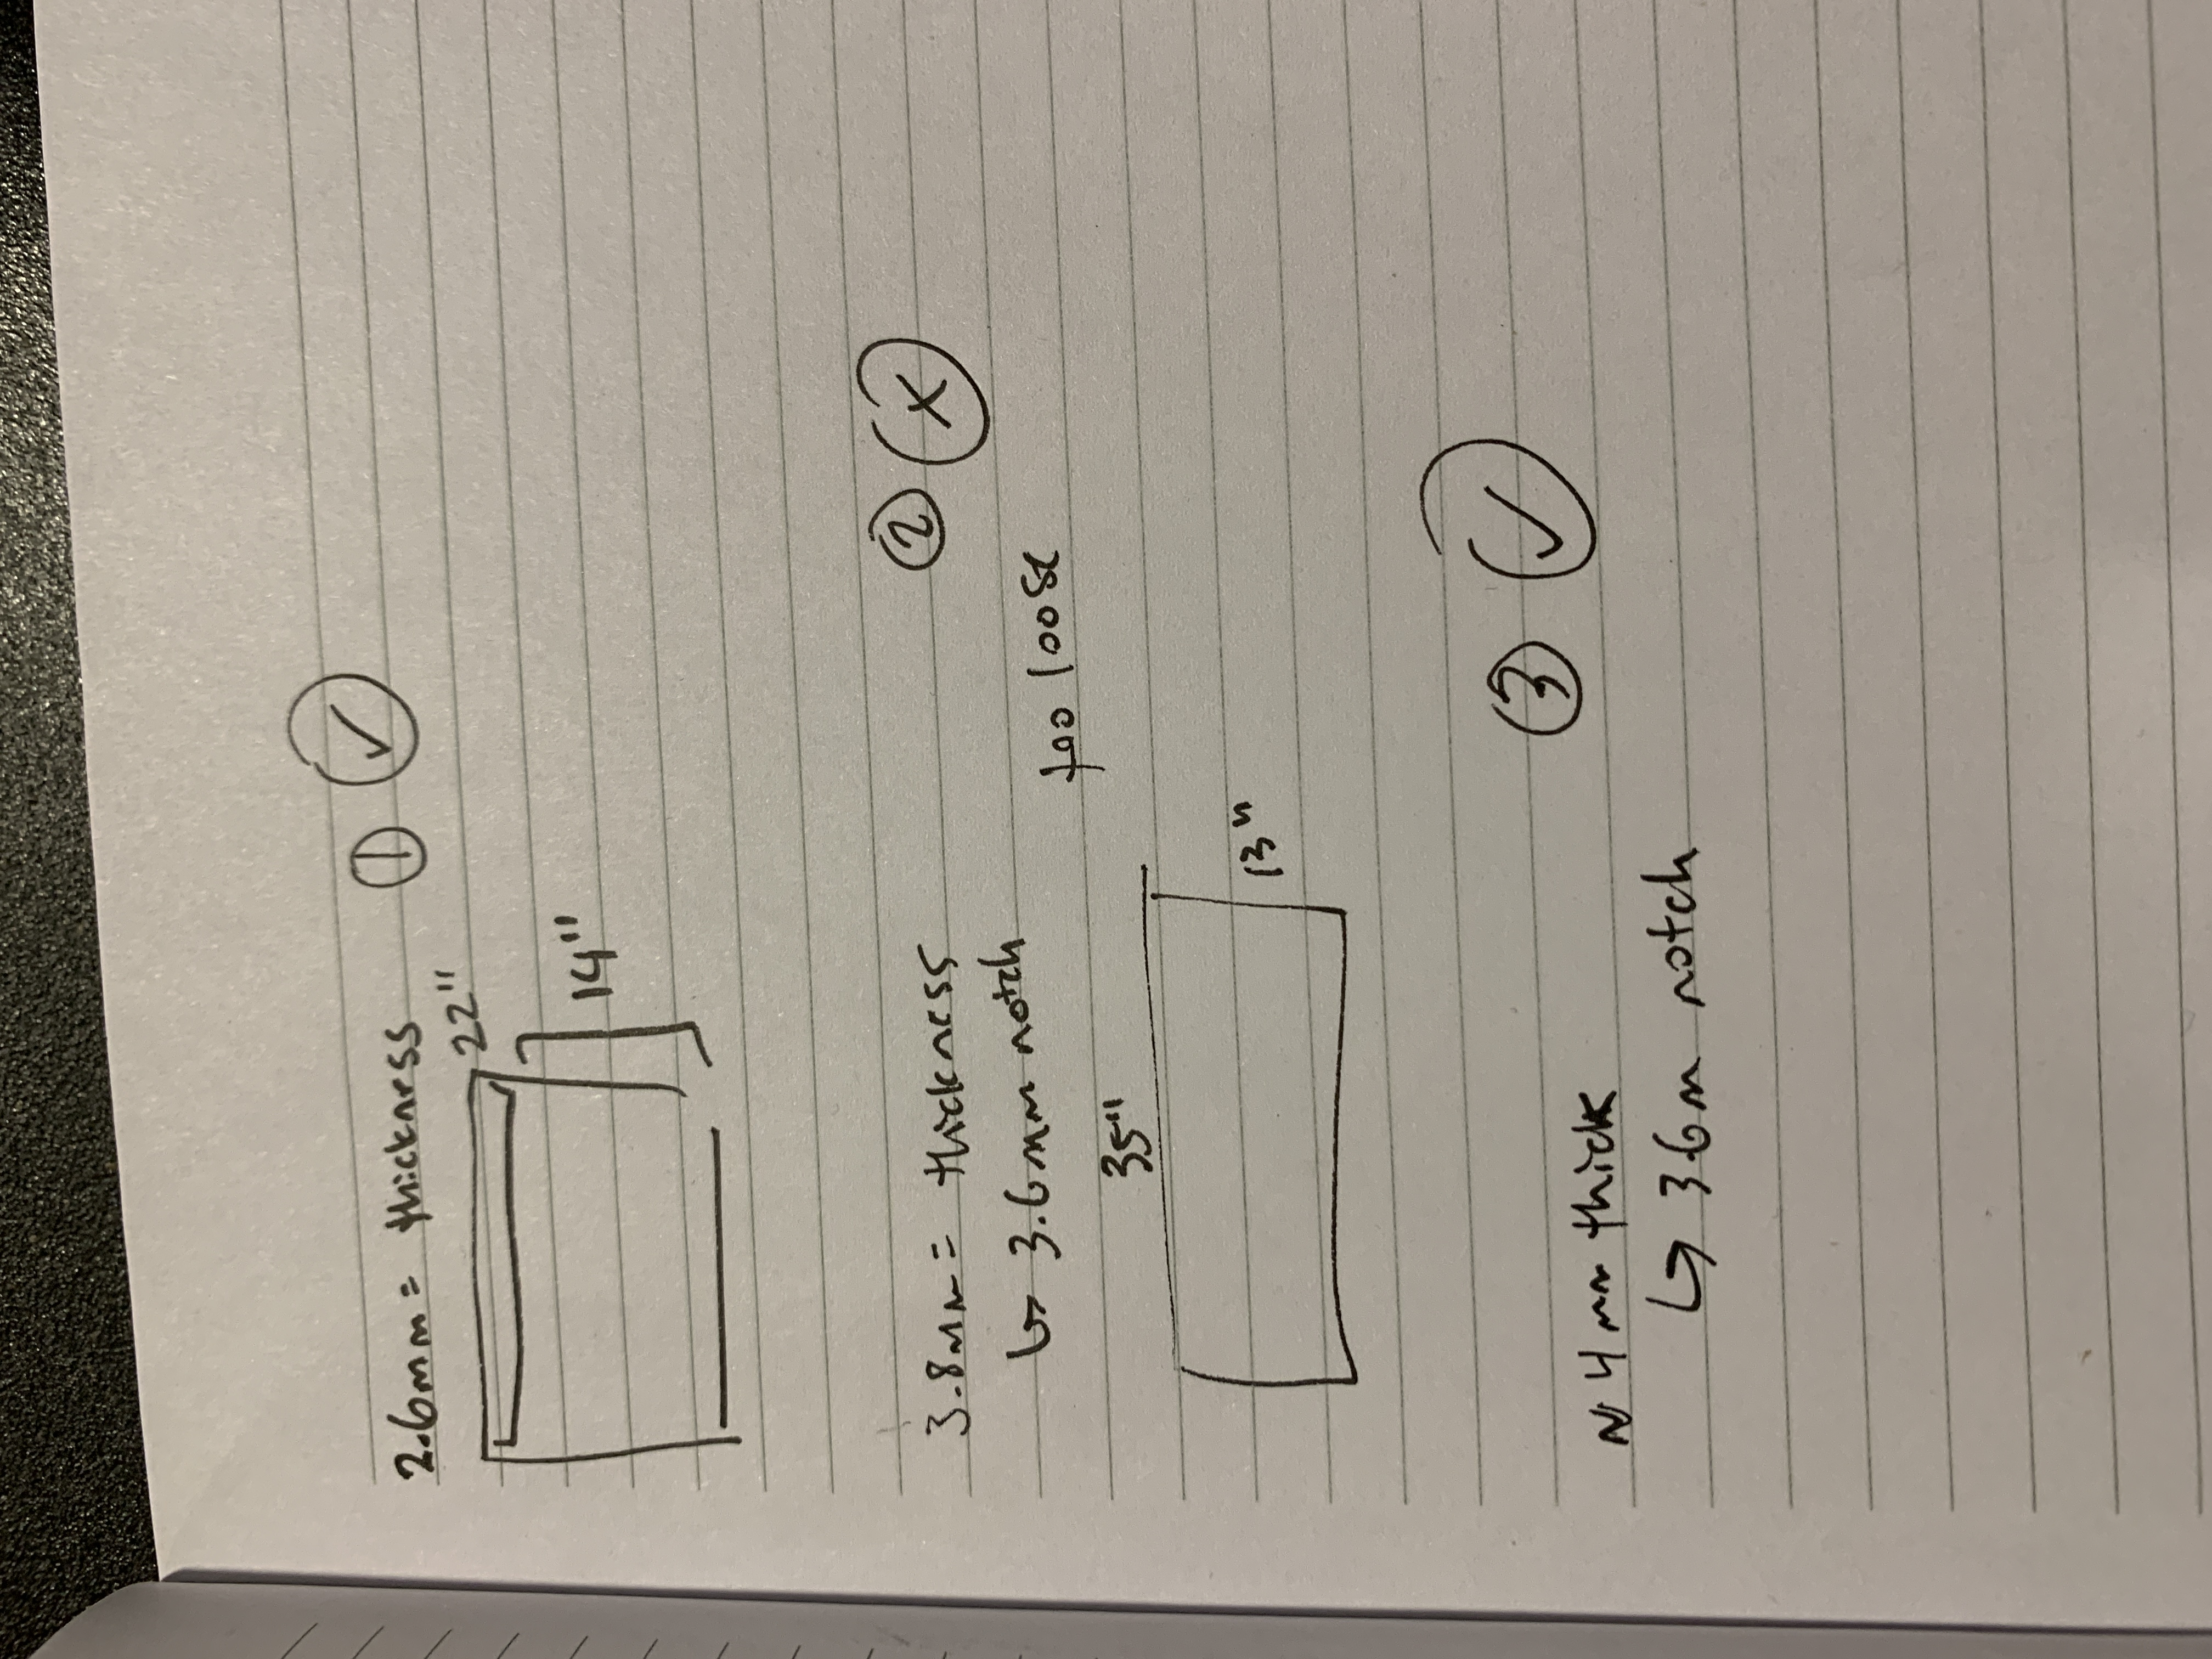 2.6mm = thickness ① ✓
22"
14"
3.8mm = thickness ② X
↳ 3.6mm notch
too loose
35"
13"
③ ✓
~ 4mm thick
↳ 3.6m notch